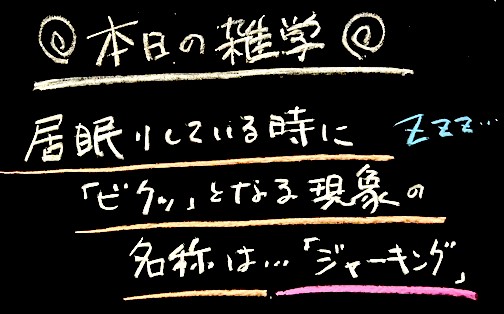 本日の雑学
居眠りしている時に zzz…
「ビクッ」となる現象の
名称は…「ジャーキング」